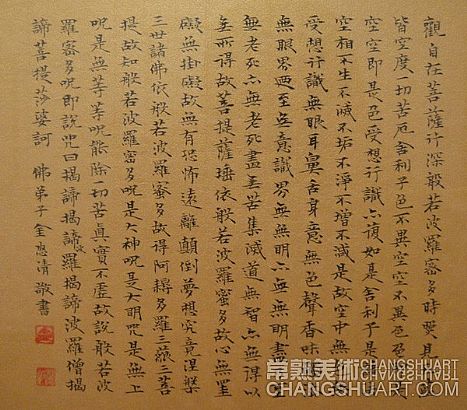 觀自在菩薩行深般若波羅蜜多時照見
皆空度一切苦厄舍利子色不異空空不異色色
空空即是色受想行識亦復如是舍利子是
空相不生不滅不垢不淨不增不減是故空中無
受想行識無眼耳鼻舌身意無色聲香味
無眼界乃至無意識界無無明亦無無明盡
無老死亦無老死盡無苦集滅道無智亦無得以
無所得故菩提薩埵依般若波羅蜜多故心無罣
礙無掛礙故無有恐怖遠離顛倒夢想究竟涅槃
三世諸佛依般若波羅蜜多故得阿耨多羅三藐三菩
提故知般若波羅蜜多呪是大神呪是大明呪是無上
呪是無等等呪能除一切苦真實不虛故說般若波
羅蜜多呪即說咒曰揭諦揭諦波羅揭諦波羅僧揭
諦菩提莎婆訶 佛弟子金清敬書
常熟美术CHANGSHUART
CHANGSHUART.COM